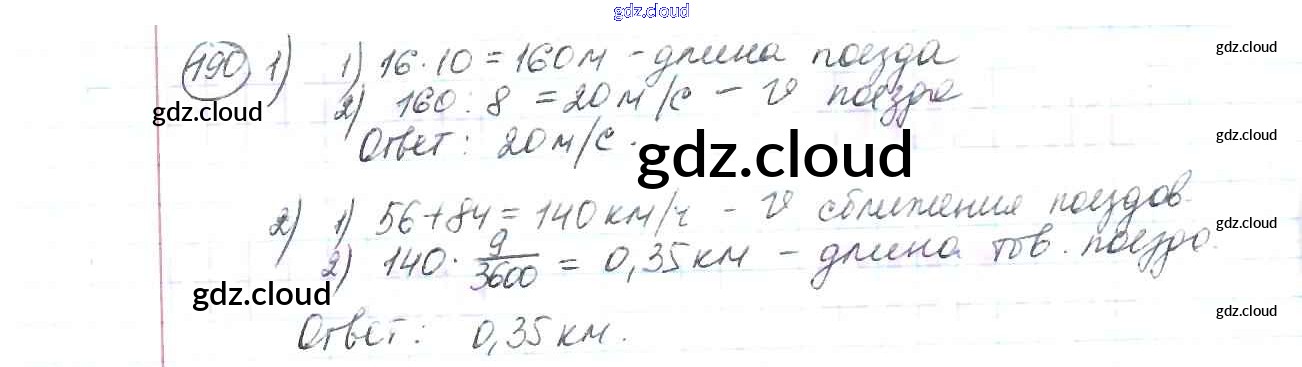 gdz.cloud
190 1) 1) 16 · 10 = 160 м - длина поезда
gdz.cloud
gdz.cloud
2) 160 : 8 = 20 м/с - v поезда
gdz.cloud
Ответ: 20 м/с.
gdz.cloud
2) 1) 56 + 84 = 140 км/ч - v сближения поездов.
gdz.cloud
2) 140 · 9/3600 = 0,35 км - длина тов. поезда.
gdz.cloud
gdz.cloud
Ответ: 0,35 км.
gdz.cloud